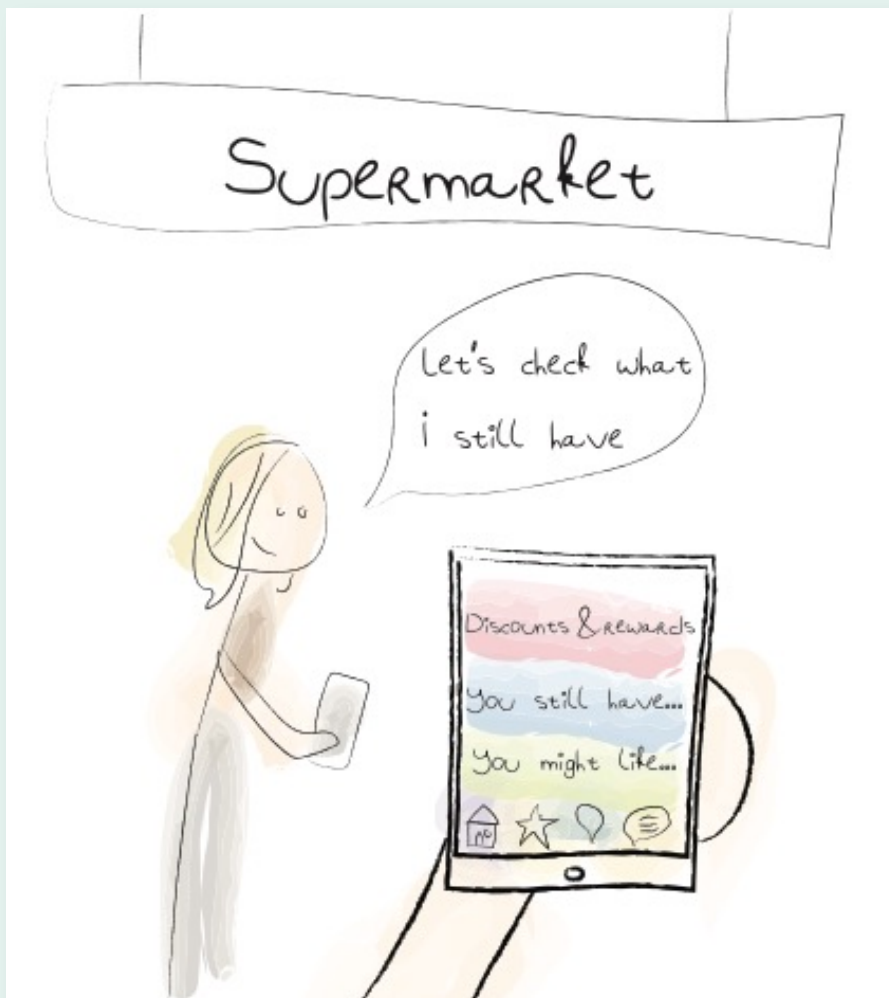 Supermarket
Let's check what
i still have
Discounts & rewards
You still have...
You might like...